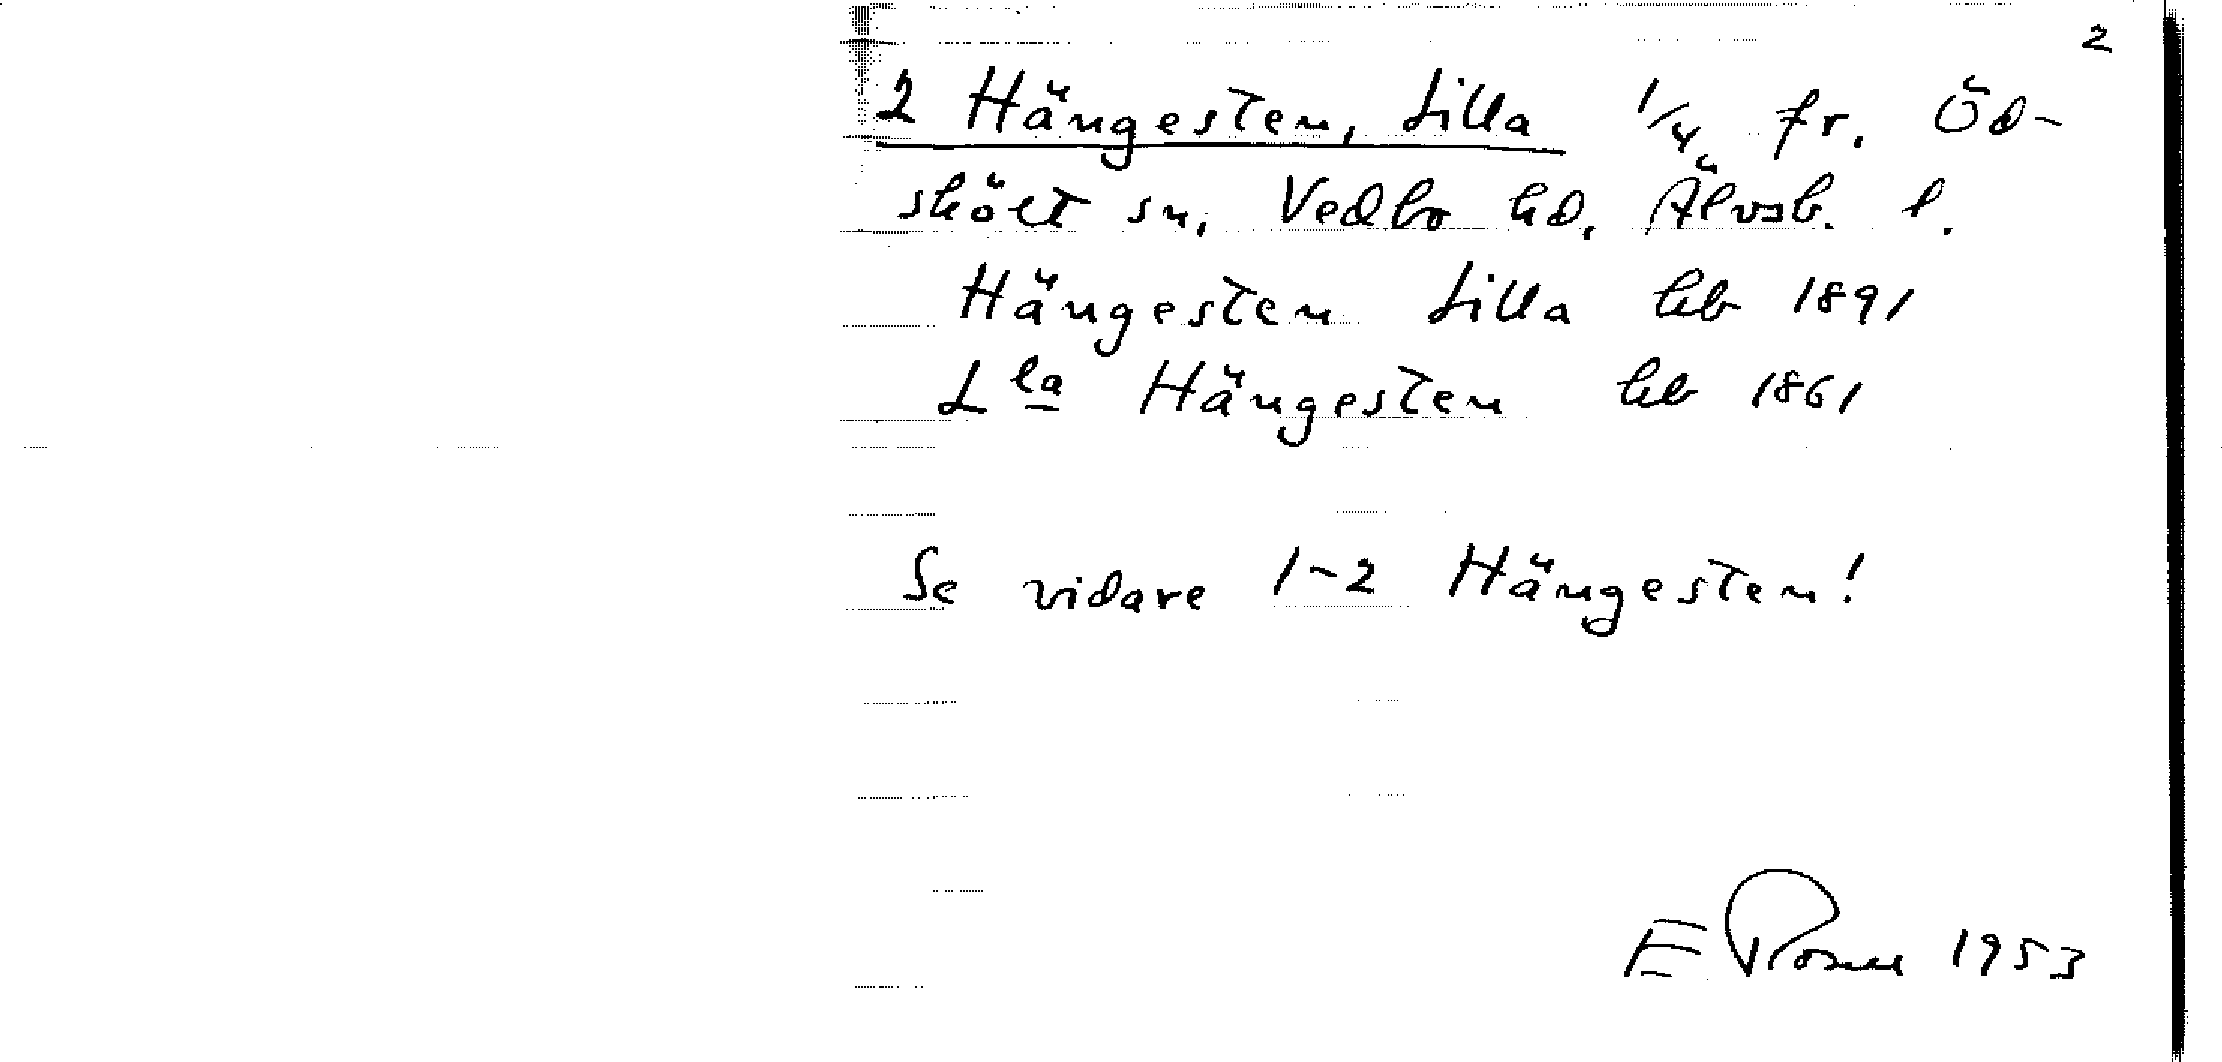 2
2 Hängesten, Lilla 1/4 fr. Öd-
skölt sn, Vedbo hd, Älvsb. l.
Hängesten Lilla hb 1891
Lla Hängesten hb 1861
Se vidare 1-2 Hängesten!
E Rosell 1953